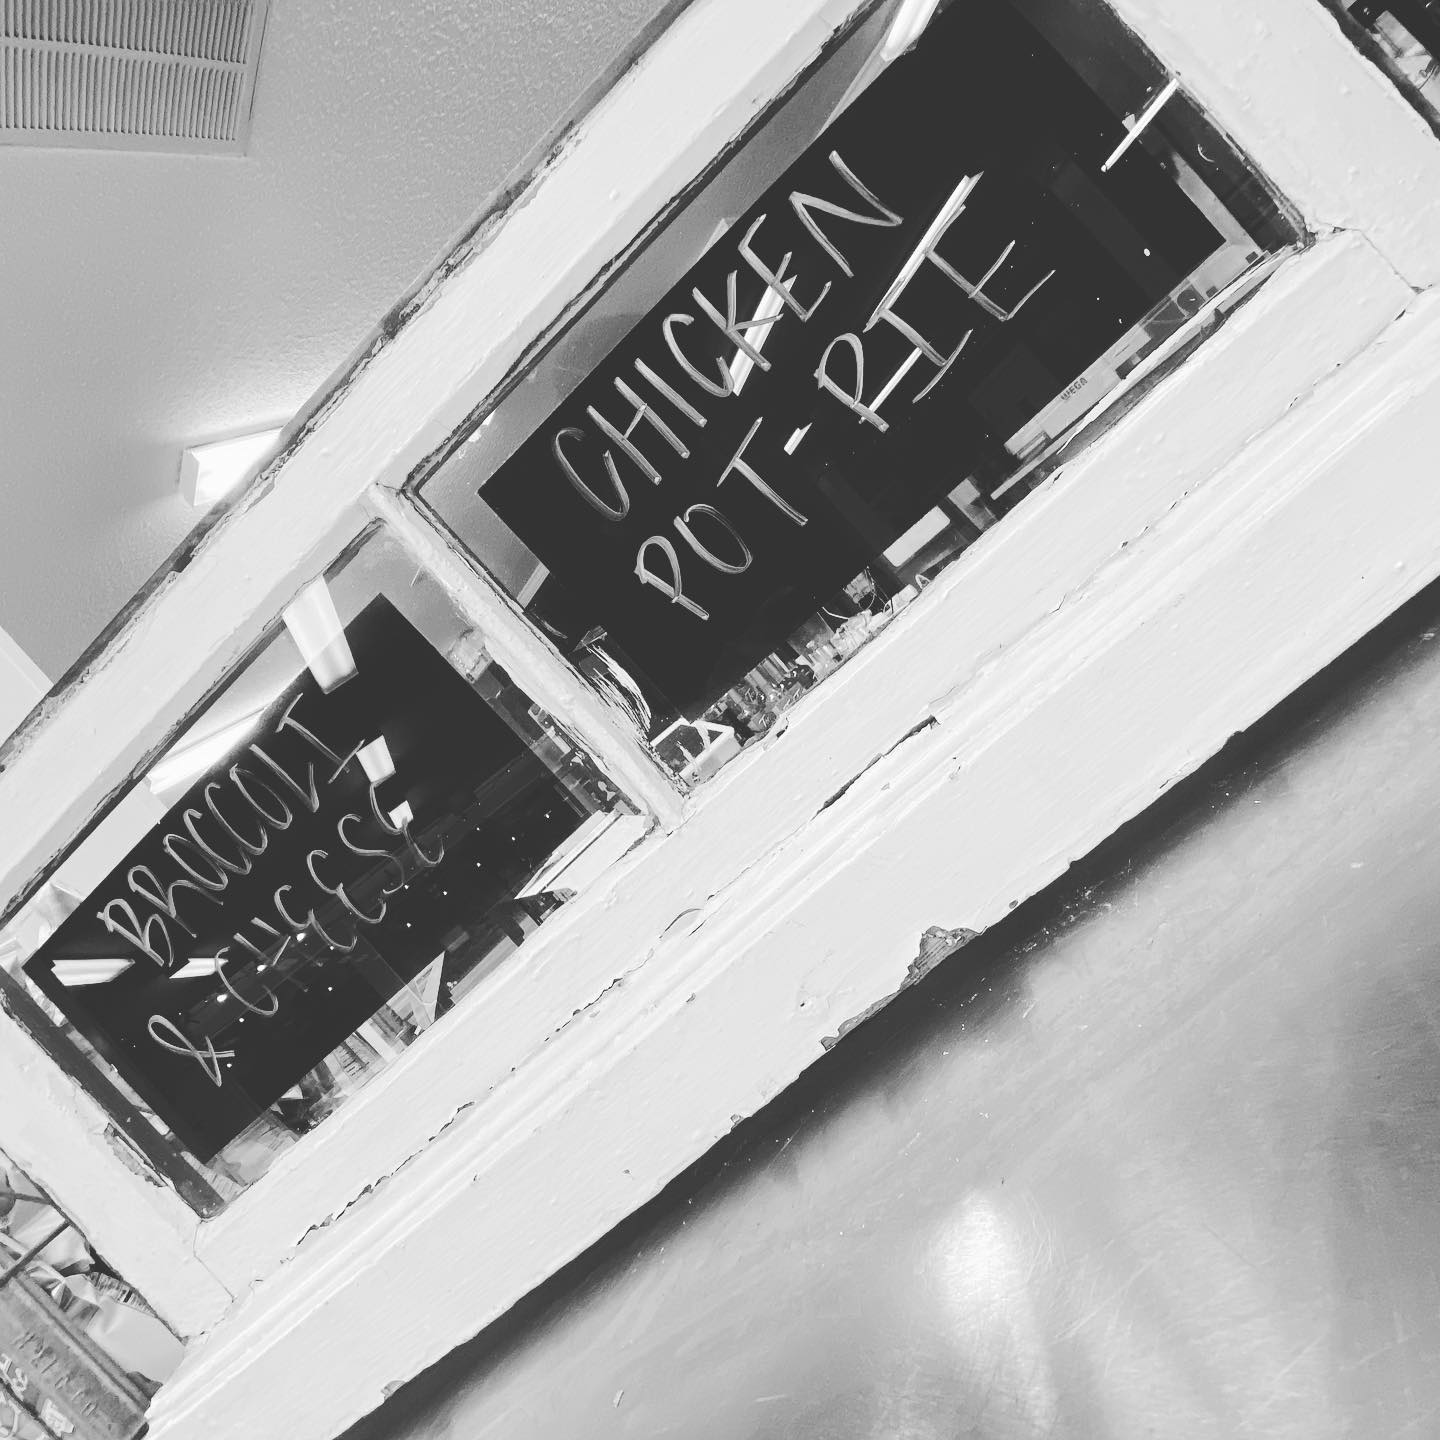 BROCCOLI
& CHEESE
CHICKEN
POT-PIE
WEGA